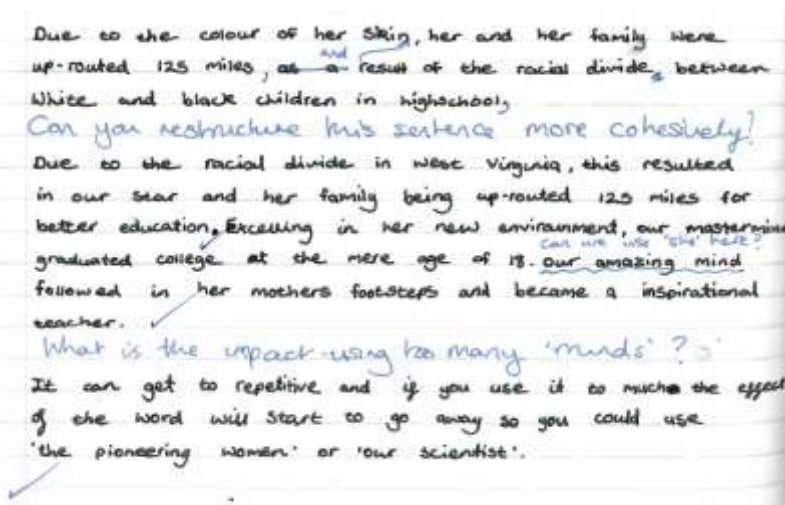 Due to the colour of her skin, her and her family were
and
up-routed 125 miles, as a result of the racial divide, between
White and black children in highschool,
Can you restructure this sentence more cohesively?
Due to the racial divide in West Virginia, this resulted
in our star and her family being up-routed 125 miles for
better education. Excelling in her new environment, our mastermind
can we use 'she' here?
graduated college at the mere age of 18. our amazing mind
followed in her mothers footsteps and became a inspirational
teacher.
What is the impact using too many 'minds'?
It can get to repetitive and if you use it to much the effect
of the word will start to go away so you could use
'the pioneering women' or 'our scientist'.